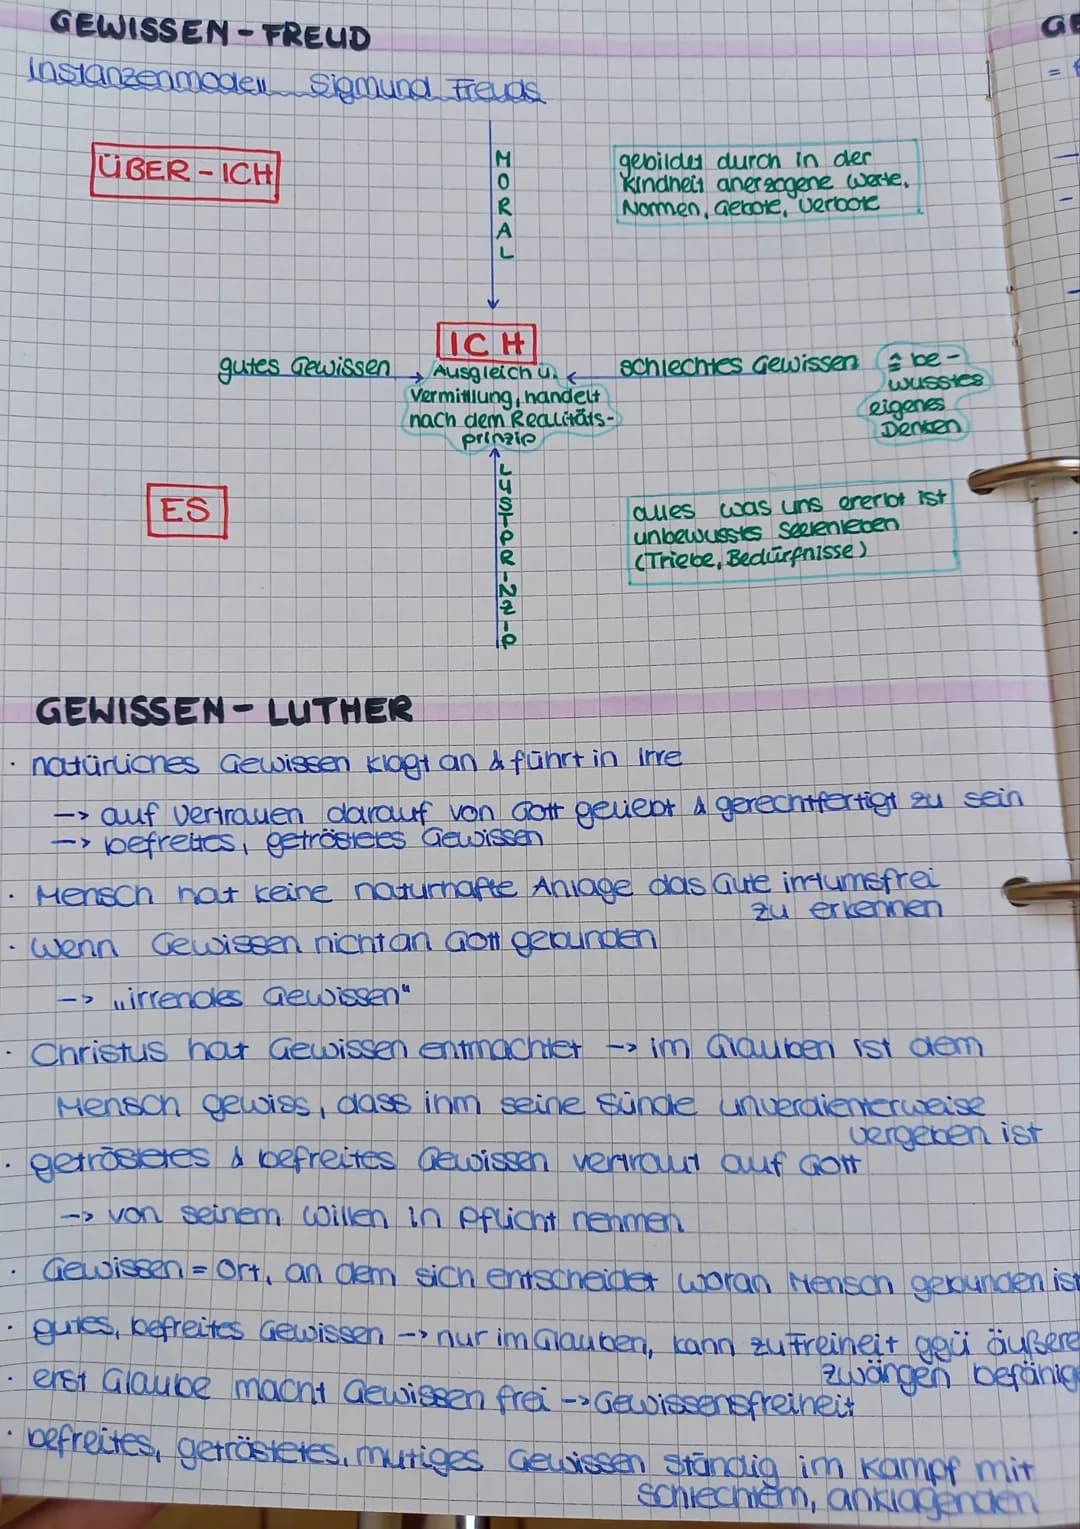 GEWISSEN - FREUD
Instanzenmodell Sigmund Freuds
ÜBER - ICH
MORAL
gebildet durch in der
Kindheit anerzogene Werte,
Normen, Gebote, Verbote
ICH
gutes Gewissen
Ausgleich u.
Vermittlung, handelt
nach dem Realitäts-
prinzip
schlechtes Gewissen
≙ be-
wusstes
eigenes
Denken
ES
LUSTPRINZIP
alles was uns ererbt ist
unbewusstes Seelenleben
(Triebe, Bedürfnisse)
GEWISSEN - LUTHER
· natürliches Gewissen klagt an & führt in Irre
-> auf Vertrauen darauf von Gott geliebt & gerechtfertigt zu sein
-> befreites, getröstetes Gewissen
· Mensch hat keine naturhafte Anlage das Gute irrtumsfrei
zu erkennen
· wenn Gewissen nicht an Gott gebunden
-> „irrendes Gewissen“
· Christus hat Gewissen entmachtet -> im Glauben ist dem
Mensch gewiss, dass ihm seine Sünde unverdienterweise
vergeben ist
· getröstetes & befreites Gewissen vertraut auf Gott
-> von seinem Willen in Pflicht nehmen
· Gewissen = Ort, an dem sich entscheidet woran Mensch gebunden ist
· gutes, befreites Gewissen -> nur im Glauben, kann zu Freiheit ggü äußere
zwängen befähig
· erst Glaube macht Gewissen frei -> Gewissensfreiheit
· befreites, getröstetes, mutiges Gewissen ständig im Kampf mit
schlechtem, anklagenden
GE
=